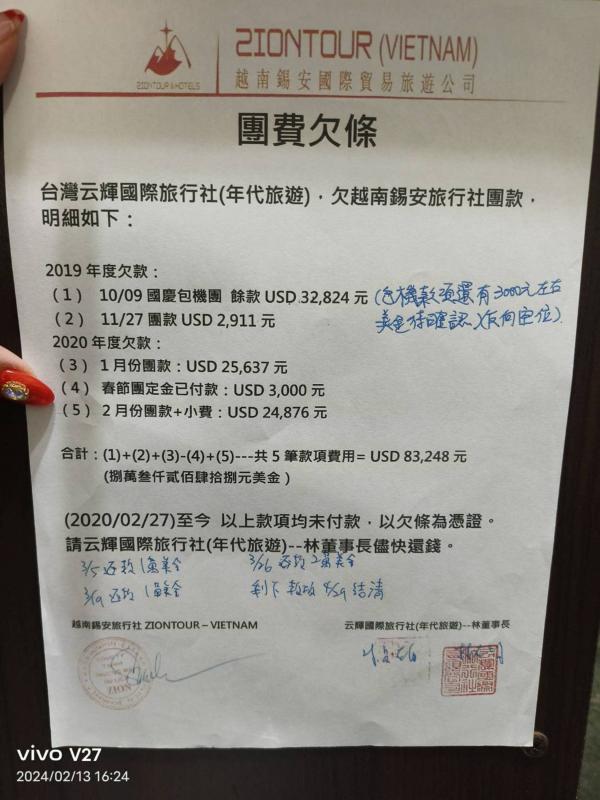 ZIONTOUR (VIETNAM)
越南錫安國際貿易旅遊公司
ZIONTOUR & HOTELS
團費欠條
台灣云輝國際旅行社(年代旅遊)，欠越南錫安旅行社團款，
明細如下：
2019 年度欠款：
(1) 10/09 國慶包機團 餘款 USD 32,824 元 (包機款項還有3000元左右
(2) 11/27 團款 USD 2,911 元 美金待確認)(反向空位)
2020 年度欠款：
(3) 1 月份團款：USD 25,637 元
(4) 春節團定金已付款：USD 3,000 元
(5) 2 月份團款+小費：USD 24,876 元
合計：(1)+(2)+(3)-(4)+(5)---共 5 筆款項費用= USD 83,248 元
(捌萬叁仟貳佰肆拾捌元美金)
(2020/02/27)至今 以上款項均未付款，以欠條為憑證。
請云輝國際旅行社(年代旅遊)--林董事長儘快還錢。
3/5 还款 1萬美金 3/26 还款 2萬美金
3/19 还款 1萬美金 剩下 4/29 結清
越南錫安旅行社 ZIONTOUR – VIETNAM 云輝國際旅行社(年代旅遊)--林董事長
vivo V27
2024/02/13 16:24